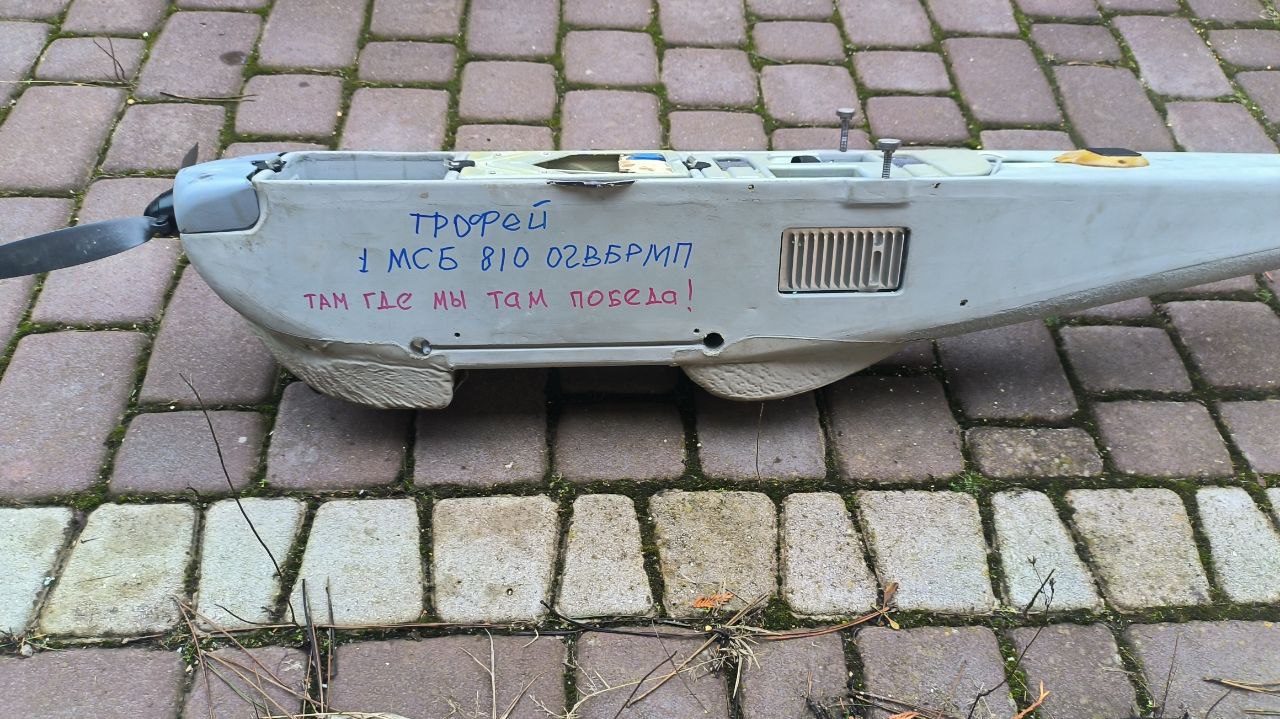 ТРОФЕЙ
1 МСБ 810 ОГВБРМП
ТАМ ГДЕ МЫ ТАМ ПОБЕДА!